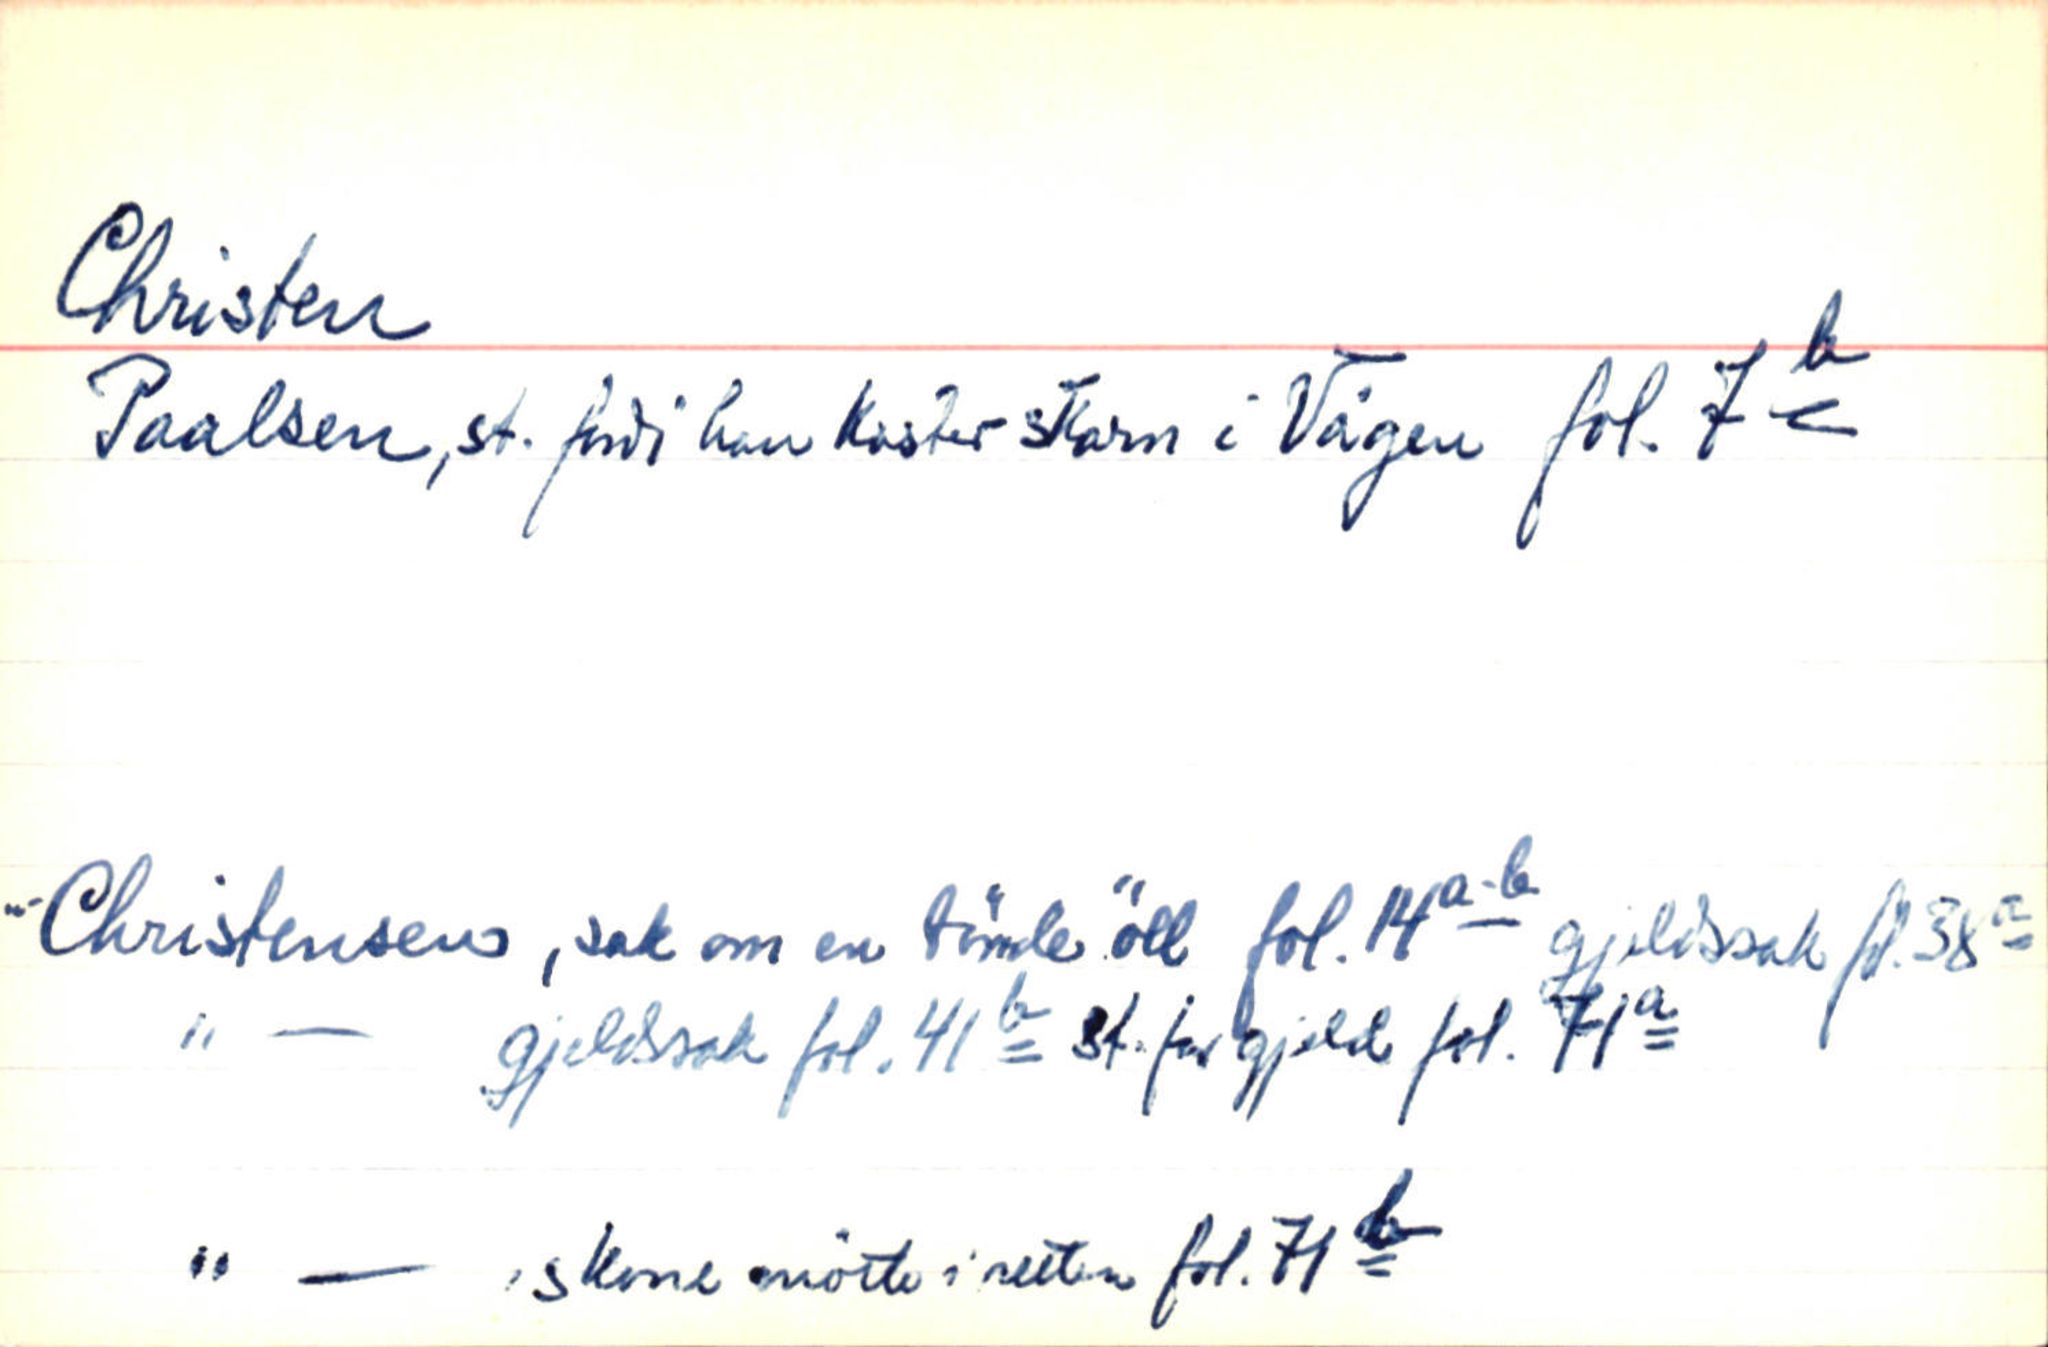 Christen
Paalsen, st. fordi han kaster skarn i Vågen fol. 7 b
"- Christensen, sak om en tönde öll fol. 14 a-b gjeldssak fol. 38 a
" — gjeldssak fol. 41 b st. for gjeld fol. 71 a
" — 's kone mötte i retten fol. 71 b